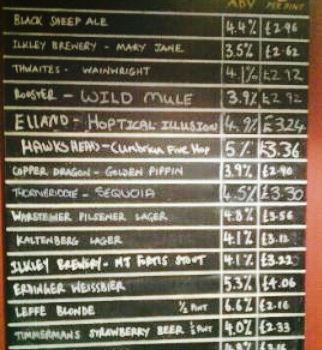 ABV PER PINT
BLACK SHEEP ALE 4.4% £2.96
ILKLEY BREWERY - MARY JANE 3.5% £2.62
THWAITES - WAINWRIGHT 4.1% £2.72
ROOSTER - WILD MULE 3.9% £2.92
ELLAND - HOPTICAL ILLUSION 4.9% £3.24
HAWKSHEAD - Cumbrian Five Hop 5% £3.36
COPPER DRAGON - GOLDEN PIPPIN 3.9% £2.90
THORNBRIDGE - SEQUOIA 4.5% £3.30
WARSTEINER PILSENER LAGER 4.8% £3.56
KALTENBERG LAGER 4.1% £3.12
ILKLEY BREWERY - MT FORTIS STOUT 4.1% £3.22
ERDINGER WEISSBIER 5.3% £4.06
LEFFE BLONDE ½ PINT 6.6% £2.16
TIMMERMANS STRAWBERRY BEER ½ PINT 4.0% £2.33